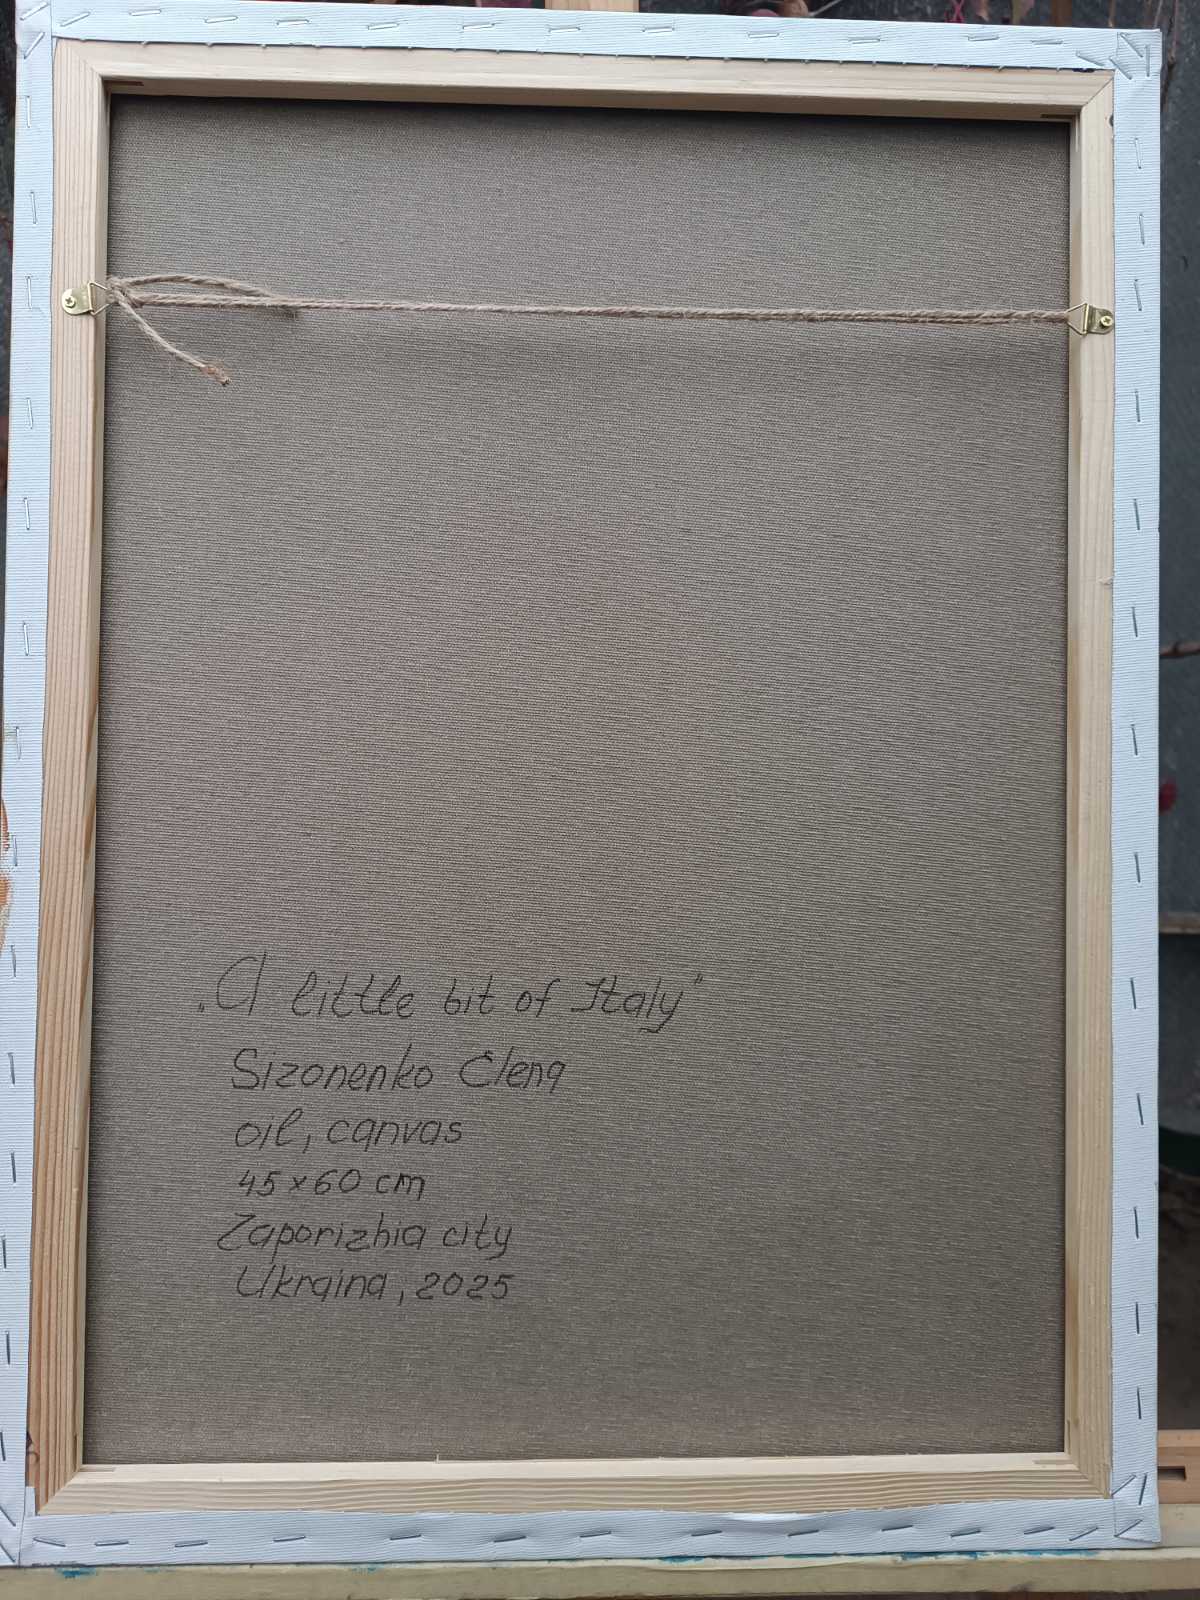 „A little bit of Italy"
Sizonenko Elena
oil, canvas
45×60 cm
Zaporizhia city
Ukraina, 2025